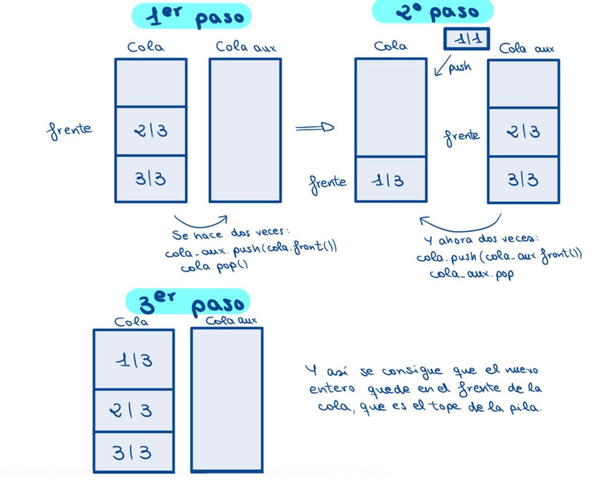 1er paso
Cola
Cola aux
frente
2|3
3|3
Se hace dos veces:
cola_aux.push(cola.front())
cola.pop()
2º paso
1|1
Cola
Cola aux
push
frente
2|3
frente
1|3
3|3
Y ahora dos veces:
cola.push(cola_aux.front())
cola_aux.pop
3er paso
Cola
Cola aux
1|3
2|3
3|3
Y así se consigue que el nuevo
entero quede en el frente de la
cola, que es el tope de la pila.